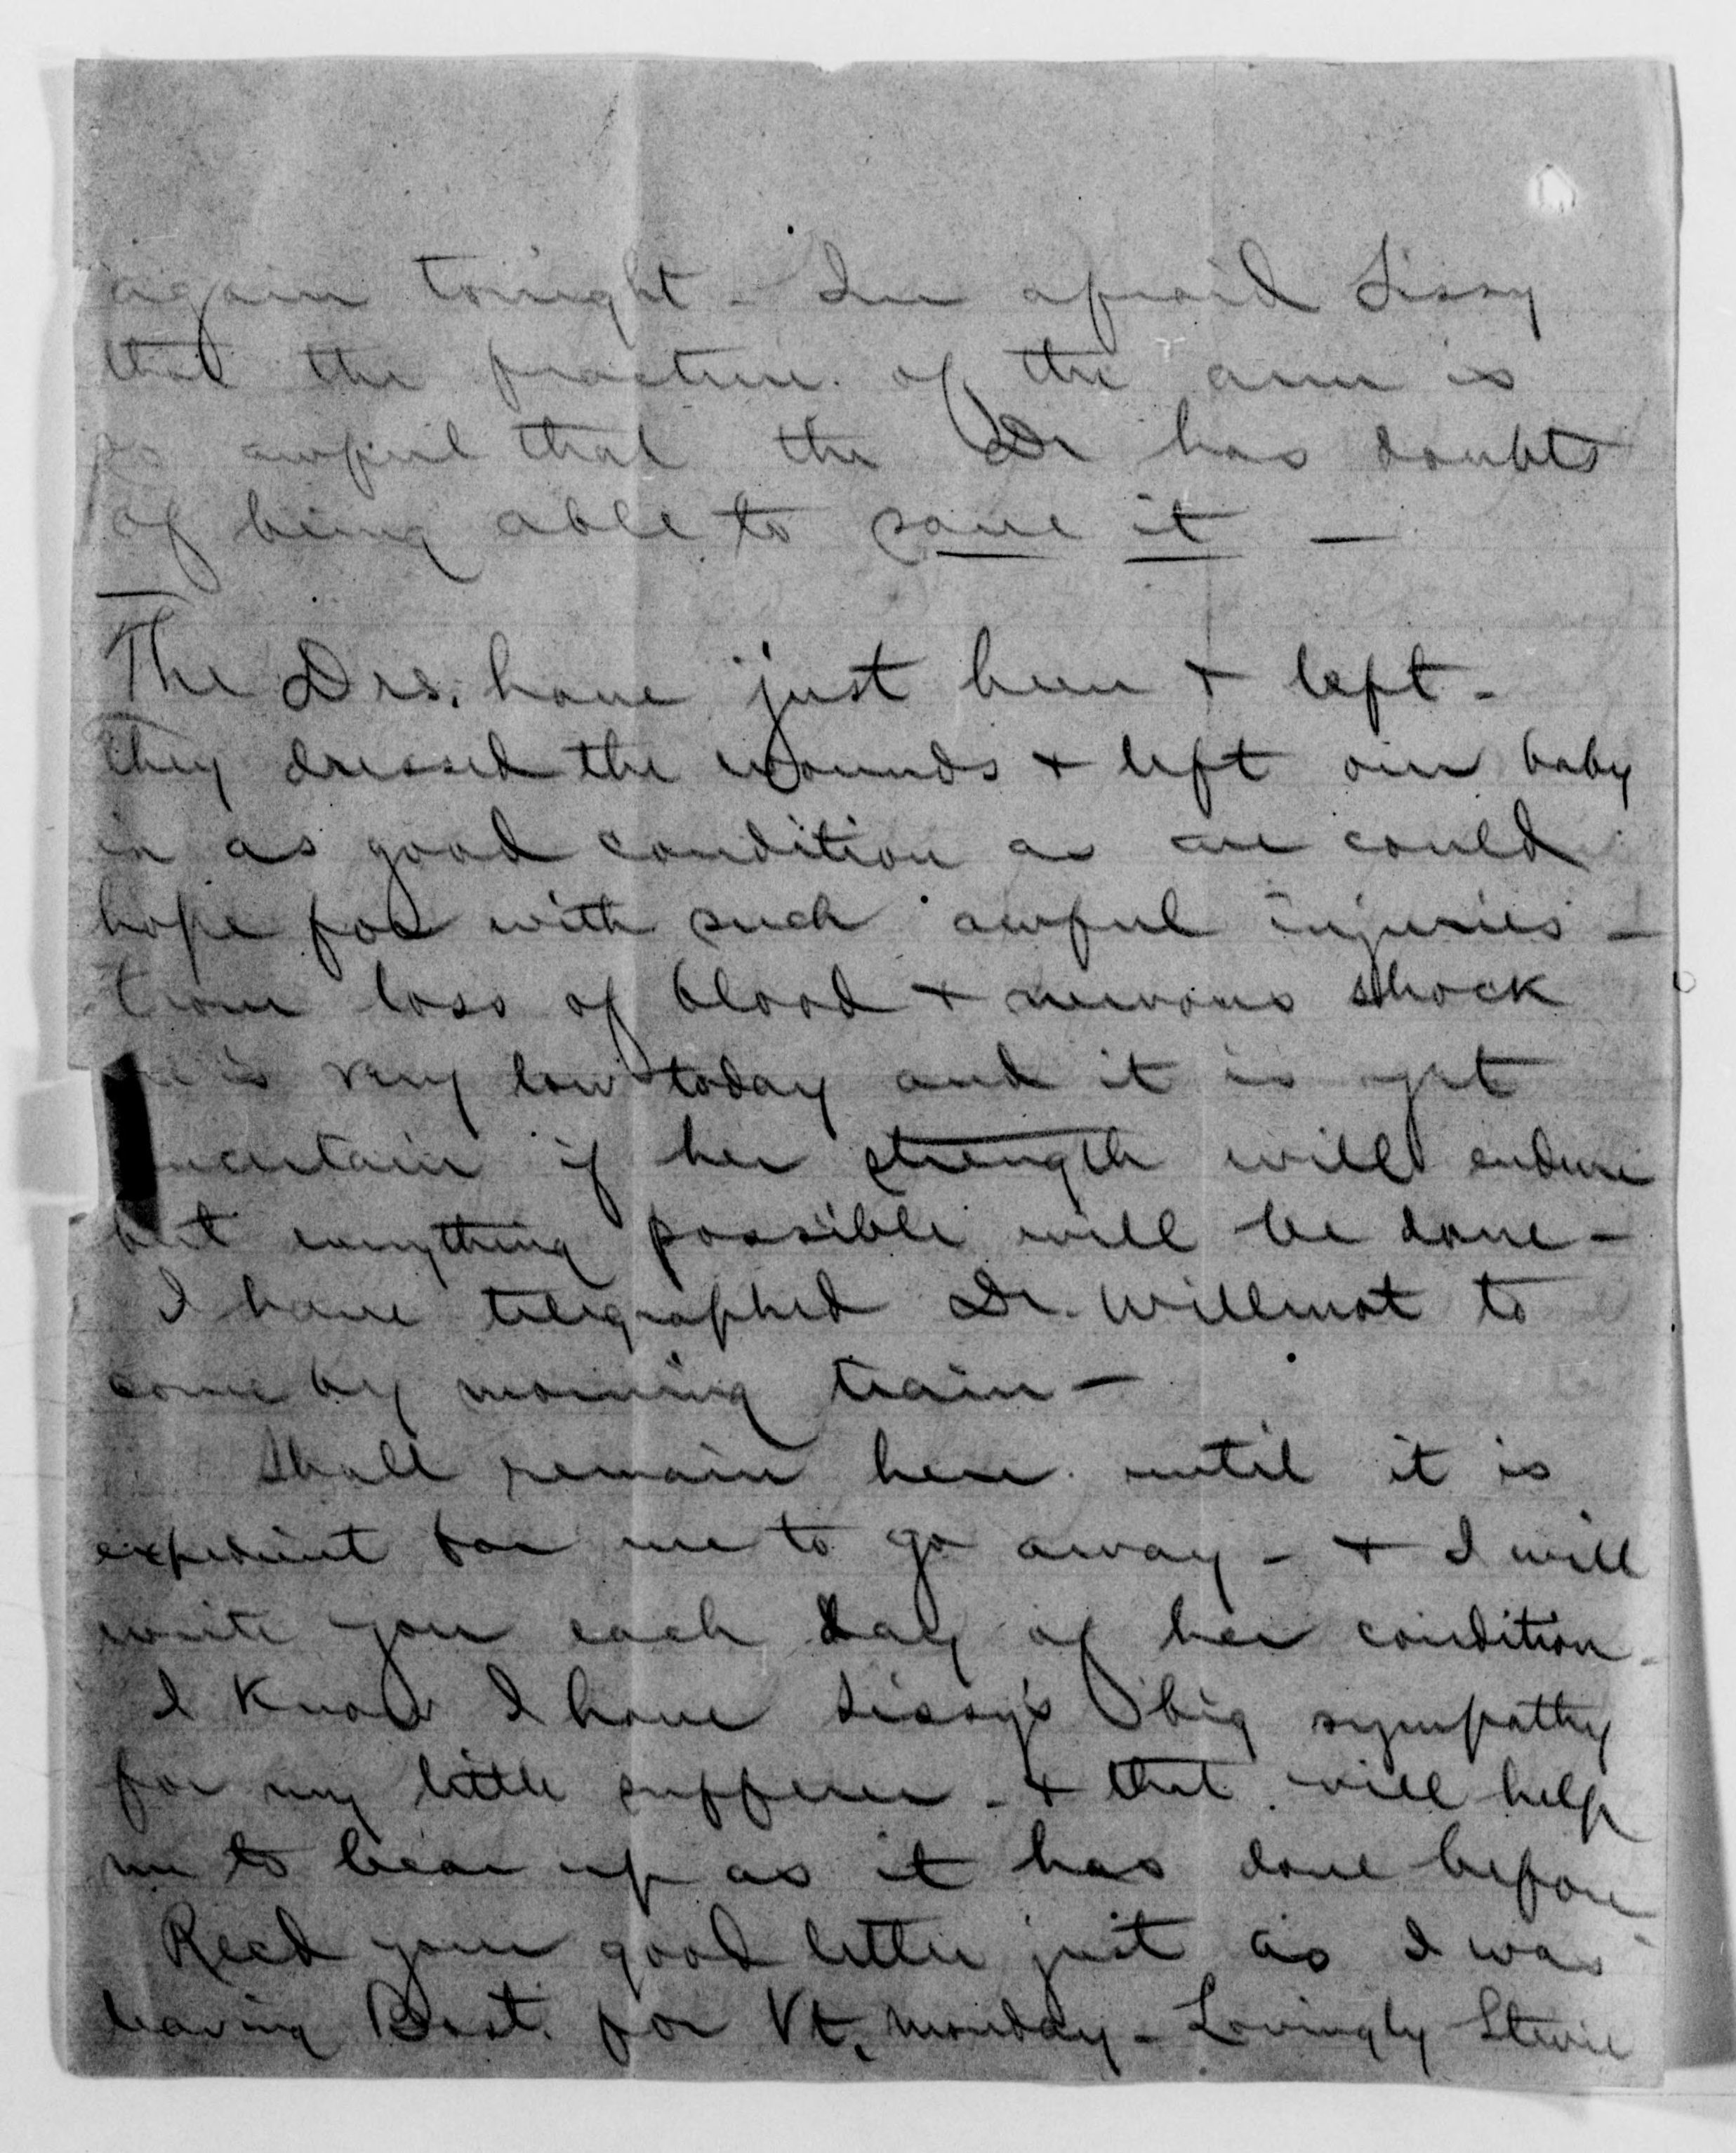 again tonight - Im afraid Sissy
that the fracture of the arm is
so awful that the Dr has doubts
of being able to save it —
The Drs. have just been + left -
They dressed the wounds + left our baby
in as good condition as we could
hope for with such awful injuries -
from loss of blood + nervous shock
she is very low today and it is yet
uncertain if her strength will endure
but everything possible will be done -
I have telegraphed Dr. Willmot to
come by morning train —
Shall remain here until it is
expedient for me to go away - + I will
write you each day of her condition -
I know I have Sissy's big sympathy
for my little sufferer - + that will help
me to bear up as it has done before
Recd your good letter just as I was
leaving Bost. for Vt. Monday - Lovingly Stevie